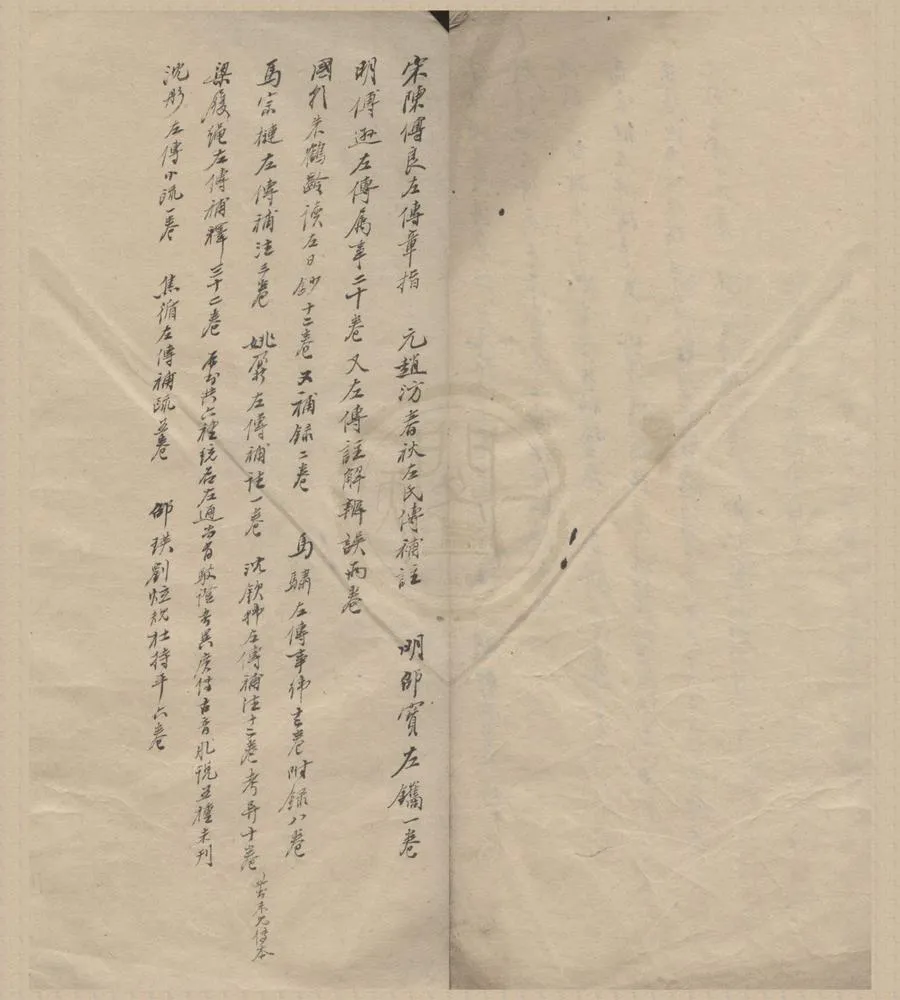 宋陳傅良左傳章指　元趙汸春秋左氏傳補註　明邵寶左觿一卷
明傅遜左傳属事二十卷　又左傳註解辨誤兩卷
國朝朱鶴齡读左日鈔十二卷　又補録二卷　馬驌左傳事緯十二卷附録八卷
馬宗槤左傳補注三卷　姚鼐左傳補注一卷　沈欽韩左傳補注十二卷考异十卷
梁履绳左傳補釋三十二卷　共六種统名左通尚有駁證考異廣傳古音臆说五種未刊
沈彤左傳小疏一卷　焦循左傳補疏五卷　邵瑛劉炫规杜持平六卷